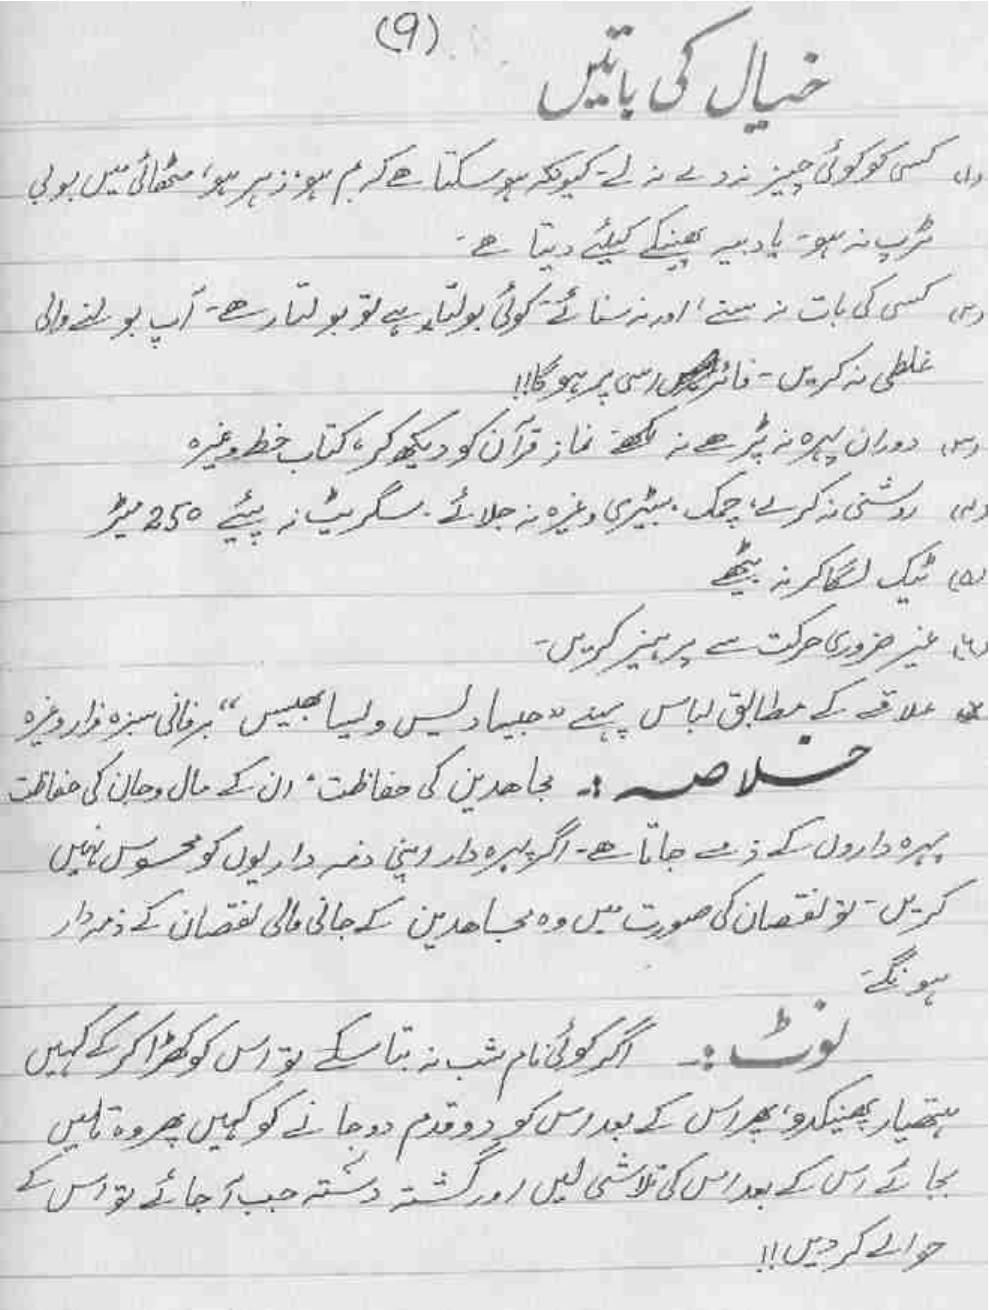 (۹)
خیال کی باتیں
(۱) کسی کو کوئی چیز نہ دے نہ لے۔ کیونکہ ہو سکتا ہے کہ بم ہو، زہر ہو، مٹھائی میں بوبی
ٹرپ نہ ہو۔ یا دیسہ پھینکے کیلئے دیتا ہے۔
(۲) کسی کی بات نہ سنے، اور نہ سنائے۔ کوئی بولتا ہے تو بولتا رہے۔ آپ بولنے والی
غلطی نہ کریں۔ فائر اسی پر ہوگا!!
(۳) دوران پہرہ نہ پڑھے نہ لکھے نماز قرآن کو دیکھ کر، کتاب خط وغیرہ
(۴) روشنی نہ کرے، چمک، بیٹری وغیرہ نہ جلائے۔ سگریٹ نہ پیئے 250 میٹر
(۵) ٹیک لگا کر نہ بیٹھے
(۶) غیر ضروری حرکت سے پرہیز کریں۔
علاقے کے مطابق لباس پہنے "جیسا دیس ویسا بھیس" برفانی سبزہ زار وغیرہ
خلاصہ :۔ مجاھدین کی حفاظت، ان کے مال وجان کی حفاظت
پہرہ داروں کے ذمے جاتا ہے۔ اگر پہرہ دار اپنی ذمہ داریوں کو محسوس نہیں
کریں۔ تو نقصان کی صورت میں وہ مجاھدین کے جانی مالی نقصان کے ذمہ دار
ہونگے
نوٹ :۔ اگر کوئی نام شب نہ بتا سکے تو اس کو کھڑا کر کے کہیں
ہتھیار پھینکدو، پھر اس کے بعد اس کو دو قدم دو جانے کو کہیں پھر وہ تالیں
بجائے اس کے بعد اس کی تلاشی لیں اور گشتہ دستہ جب آجائے تو اس کے
حوالے کر دیں!!